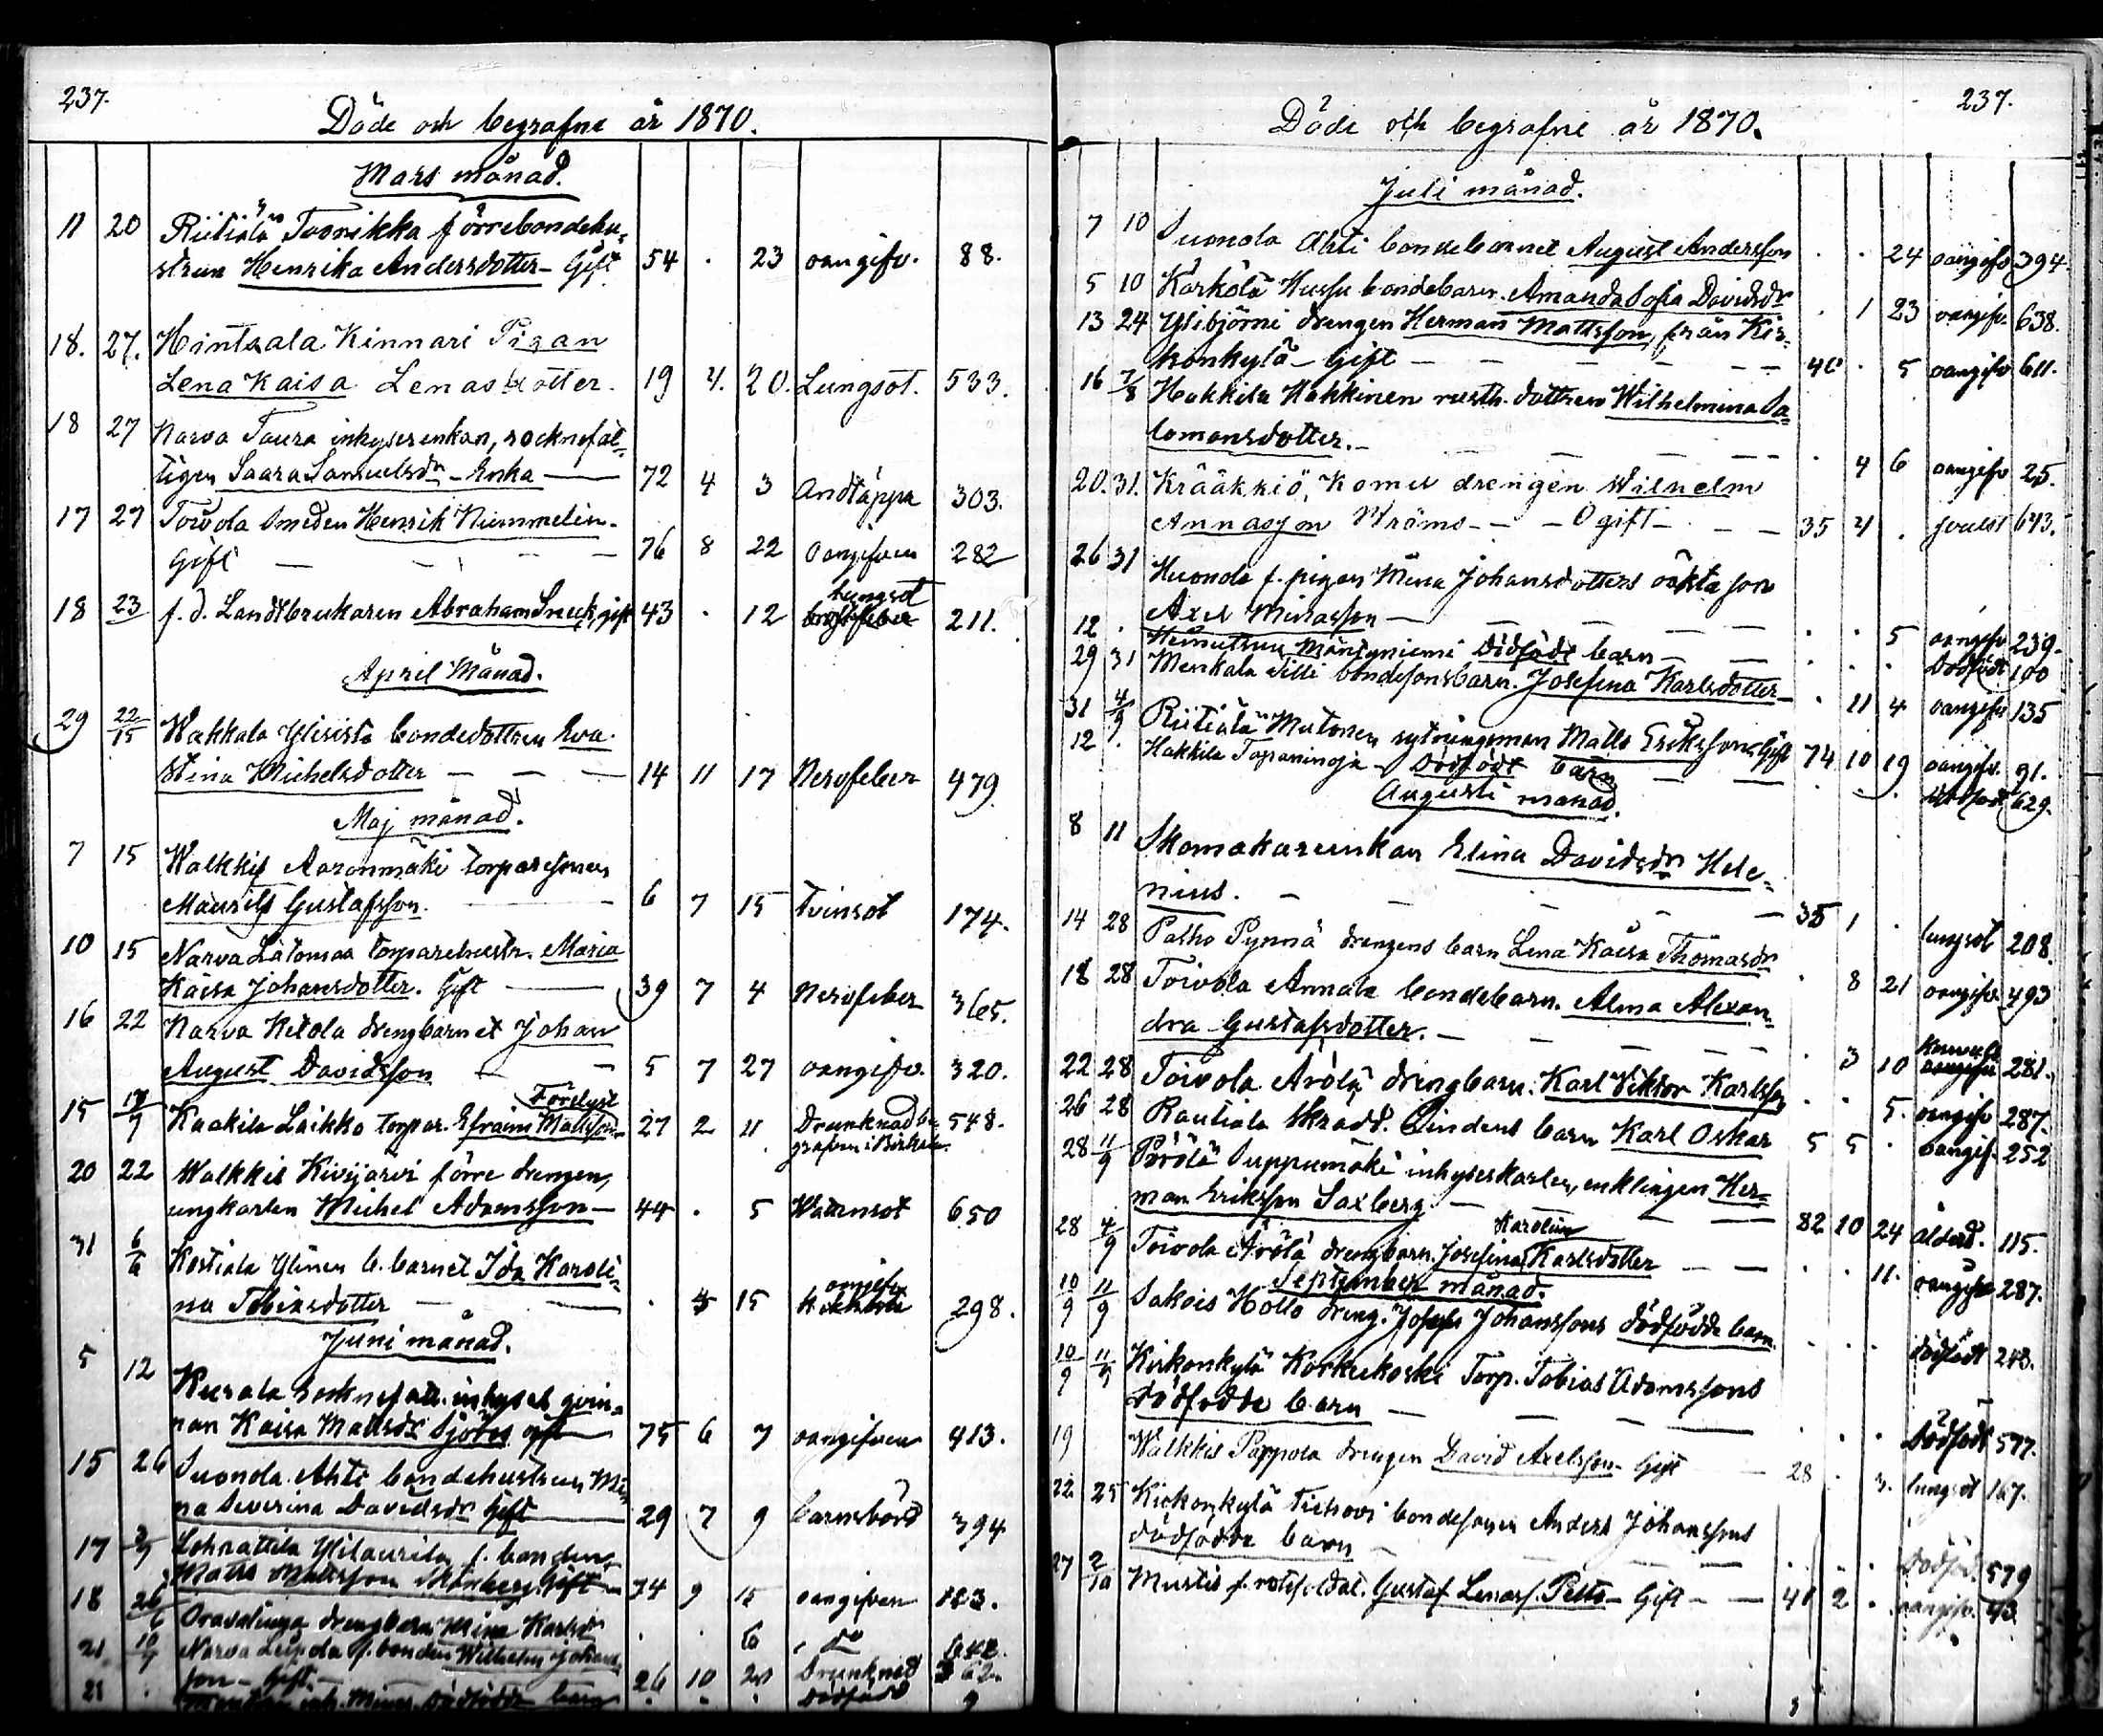 237.
Döde och begrafne år 1870.
Mars månad.
11 20 Riitiälä Tuorikka förre bondehu-
strun Henrika Andersdotter – Gift 54 . 23 oangifv. 88.
18. 27. Hintsala Kinnari Pigan
Lena Kaisa Lenasdotter. 19 4. 20. Lungsot. 533.
18 27 Narva Taura inhysesenkan, socknefat-
tigen Saara Samuelsdr – Enka — 72 4 3 Andtäppa 303.
17 27 Toivola Smeden Henrik Nummelin.
Gift — 76 8 22 Oangifven 282
lungsot
18 23 f. d. Landtbrukaren Abraham Sneck, gift 43 . 12 211.
April Månad.
29 22/15 Wakkala Ylisistö bondedottren Eva
Stina Michelsdotter — 14 11 17 Nervfeber 479
Maj månad.
7 15 Walkkis Aaronmäki torparesonen
Maurits Gustafsson. 6 7 15 Tvinsot 174.
10 15 Narva Latomaa torparehustr. Maria
Kaisa Johansdotter. Gift — 39 7 4 Nervfeber 365.
16 22 Narva Ketola drengbarnet Johan
August Davidsson — 5 7 27 oangifv. 320.
Förelyst
15 17/7 Kaakila Laikko torpar. Efraim Mattsson 27 2 11 Drunknad be- 548.
grafven i Birkala.
20 22 Walkkis Kivijärvi förre drengen,
ungkarlen Michel Adamsson — 44 . 5 Wattensot 650
oangifv.
31 6/6 Kostiala Ylinen b. barnet Ida Karoli-
na Tobiasdotter — . 4 15 298.
Juni månad.
5 12 Kurala socknefatt. inhyses qvin-
nan Kaisa Mattsdr gift 75 6 7 oangifven 413.
15 26 Suonola Ahti bondehustrun Mi-
na Severina Davidsdr Gift 29 7 9 barnsbörd 394
17 3/7 Lohnattila Ylilaurila f. bonden
Matts Mattsson Gift 74 9 15 oangifven 123.
18 26/6 drengbarn Mina Karlsdr . . 6 do
21 10/7 Narva f. bonden Wilhelm Johans-
son – Gift – 26 10 20 Drunknad 362.
21 . inh. dödfödde barn . . . Dödfödd
237.
Döde och begrafne år 1870.
Juli månad.
7 10 Suonola Ahti bondebarnet August Andersson . . 24 oangifv 394.
5 10 Kärkölä Hussu bondebarn. Amanda Sofia Davidsdr . 1 23 oangifv. 638.
13 24 Ylebjörni drengen Herman Mattsson, från Kir-
konkylä – Gift — 40 . 5 oangifv 611.
16 7/8 Hakkila Hakkinen rusth. dottren Wilhelmina Sa-
lomonsdotter. — . 4 6 oangifv 25.
20. 31. Krääkkiö, Komu drengen Wilhelm
Annason Ströms – – Ogift – 35 4 . svulst 643.
26 31 Huonola f. pigan Mina Johansdotters oäkta son
Axel Minasson — . . 5 oangifv 239.
12 . Mäntyniemi Dödfödt barn — . . . Dödfödt 100
29 31 Menkala Tilli bondesonsbarn. Josefina Karlsdotter — . 11 4 oangifv 135
31 4/9 Riitiälä Mutonen sytningsman Matts Eriksson Gift 74 10 19 oangifv. 91.
12 . Hakkila Tapaninoja – Dödfödt barn . . . Dödfödt 629.
Augusti månad.
8 11 Skomakareenkan Elina Davidsdr Hele-
nius. — 35 1 . lungsot 208.
14 28 Palho Pynnä drengens barn Lena Kaisa Thomasdr . 8 21 oangifv. 493
18 28 Toivola Annala bondebarn. Alma Alexan-
dra Gustafsdotter. — . 3 10 281.
22 28 Toivola Arölä drengbarn. Karl Viktor Karlsson . . 5. oangifv 287.
26 28 Rautiala Skradd. Lindens barn Karl Oskar 5 5 . oangif. 252
28 11/9 Pörölä Suppumäki inhyseskarlen, enklingen Her-
man Eriksson Saxberg — 82 10 24 ålderd. 115.
Karolina
28 4/9 Toivola Arölä drengbarn. Josefina Karlsdotter — . . 11. oangifv 287.
September månad.
10/9 11/9 Sakois Hollo dreng. Josefs Johanssons dödfödde barn . . . dödfödt 248.
10/9 11/9 Kirkonkylä Korkeekoski Torp. Tobias Adamssons
dödfödde barn — . . . Dödfödt 577.
19 Walkkis Pappola drengen David Axelsson – Gift 28 . 3. lungsot 167.
22 25 Kirkonkylä bondesonen Anders Johanssons
dödfödde barn — . . . Dödföd. 579
27 2/10 Mustis f. rotesoldat. Gustaf Lenass. Petts – Gift – 41 2 . oangifv. 43.